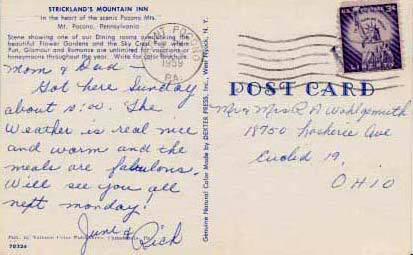 STRICKLAND'S MOUNTAIN INN
In the heart of the scenic Pocono Mts.
Mt. Pocono, Pennsylvania
Scene showing one of our Dining rooms overlooking the
beautiful Flower Gardens and the Sky Crest Pool where
Fun, Glamour and Romance are unlimited for vacations or
honeymoons throughout the year. Write for color brochure.
Mom & Dad -
Got here Sunday
about 5:00. The
Weather is real nice
and warm and the
meals are fabulous.
Will see you all
next monday!
June & Rich
70326
Genuine Natural Color Made by DEXTER PRESS, Inc., West Nyack, N. Y.
PA.
1959
3¢
LIBERTY
POST CARD
Mr & Mrs R A Wohlgemuth
18750 Ave
Euclid 19,
OHIO